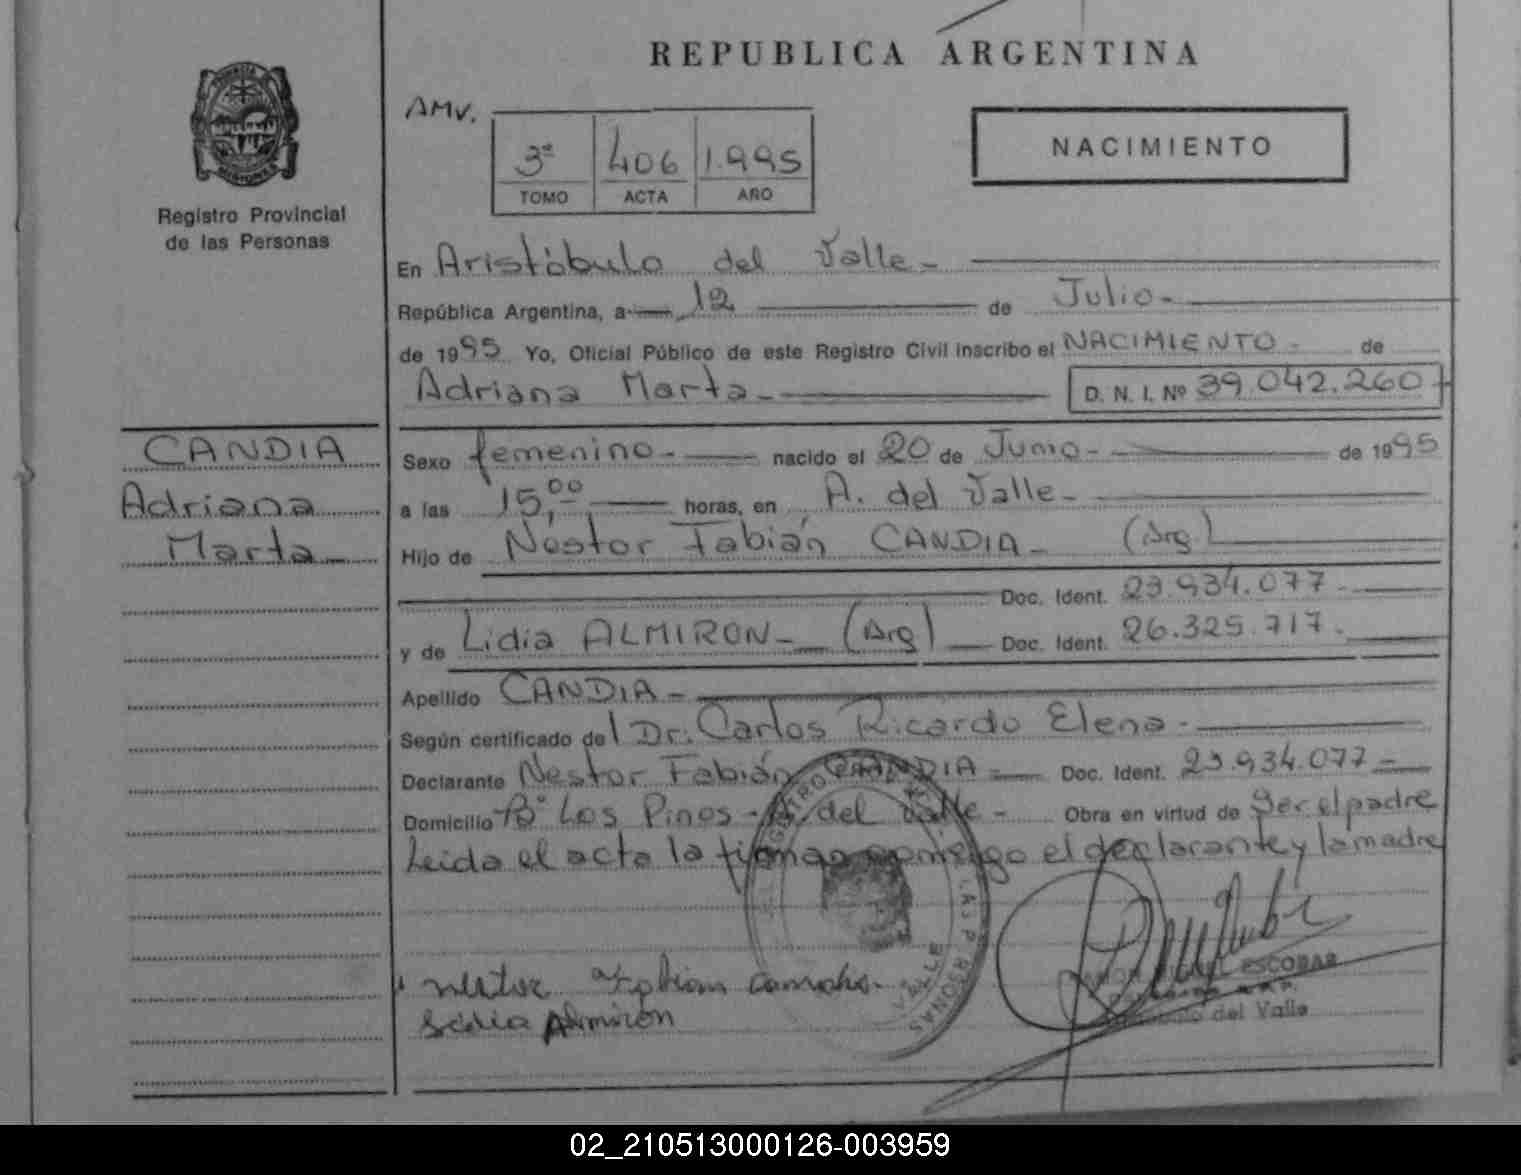 REPUBLICA ARGENTINA
AMV.
3ª 406 1.995
TOMO ACTA AÑO
NACIMIENTO
PROVINCIA DE
MISIONES
Registro Provincial
de las Personas
En Aristóbulo del Valle-
República Argentina, a 12 de Julio-
de 1995 Yo, Oficial Público de este Registro Civil inscribo el NACIMIENTO- de
Adriana Marta- D. N. I. Nº 39.042.260
CANDIA
Adriana
Marta-
Sexo femenino- nacido el 20 de Junio- de 1995
a las 15,00 horas, en A. del Valle-
Hijo de Néstor Fabián CANDIA- (Arg.)
Doc. Ident. 23.934.077-
y de Lidia ALMIRON- (Arg) Doc. Ident. 26.325.717.
Apellido CANDIA-
Según certificado del Dr. Carlos Ricardo Elena-
Declarante Nestor Fabián CANDIA- Doc. Ident. 23.934.077-
Domicilio Bº Los Pinos - A. del Valle- Obra en virtud de Ser el padre
Leida el acta la firman conmigo el declarante y la madre
nestor Fabian
Almiron
ESCOBAR
del Valle
02_210513000126-003959